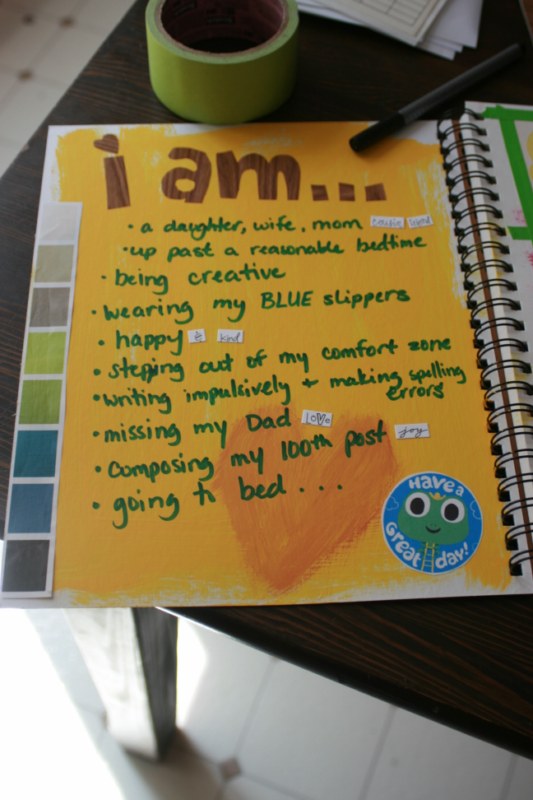 i am...
• a daughter, wife, mom
• up past a reasonable bedtime
• being creative
• wearing my BLUE slippers
• happy & kind
• steping out of my comfort zone
• writing impulsively + making spelling
errors
• missing my Dad love
• composing my 100th post joy
• going to bed . . .
Have a
Great day!